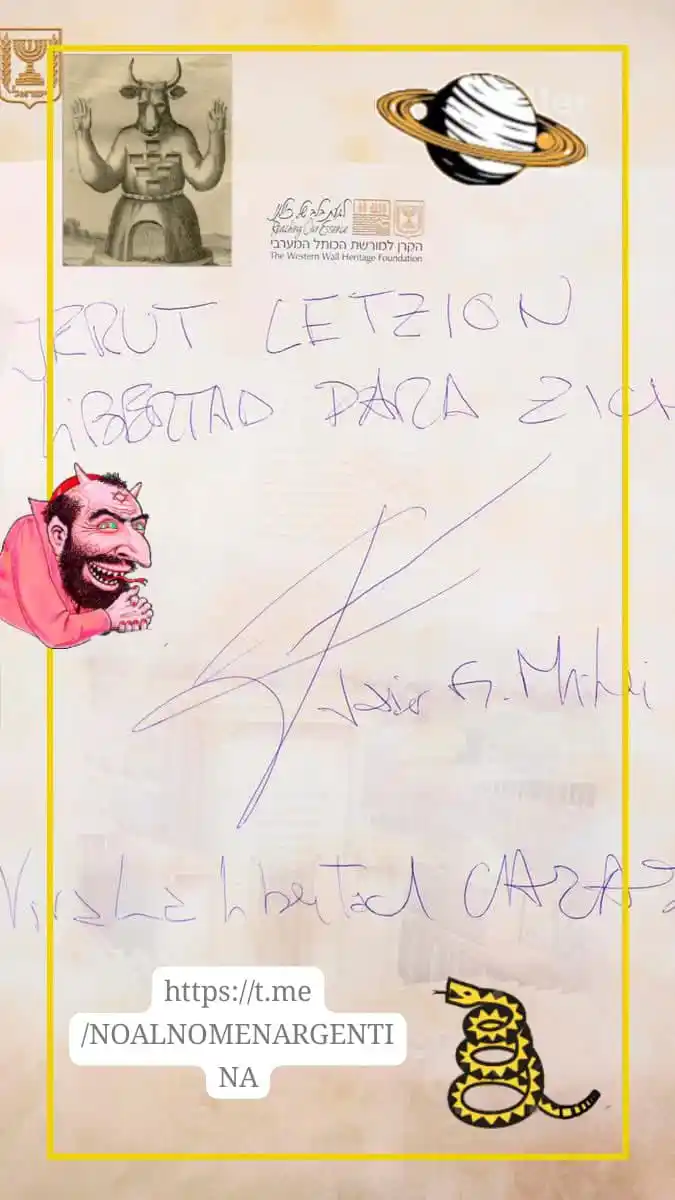 ישראל
Reaching Our Essence
הקרן למורשת הכותל המערבי
The Western Wall Heritage Foundation
JERUT LETZION
LIBERTAD PARA ZION
Javier G. Milei
Viva La Libertad CARAJO
https://t.me
/NOALNOMENARGENTI
NA